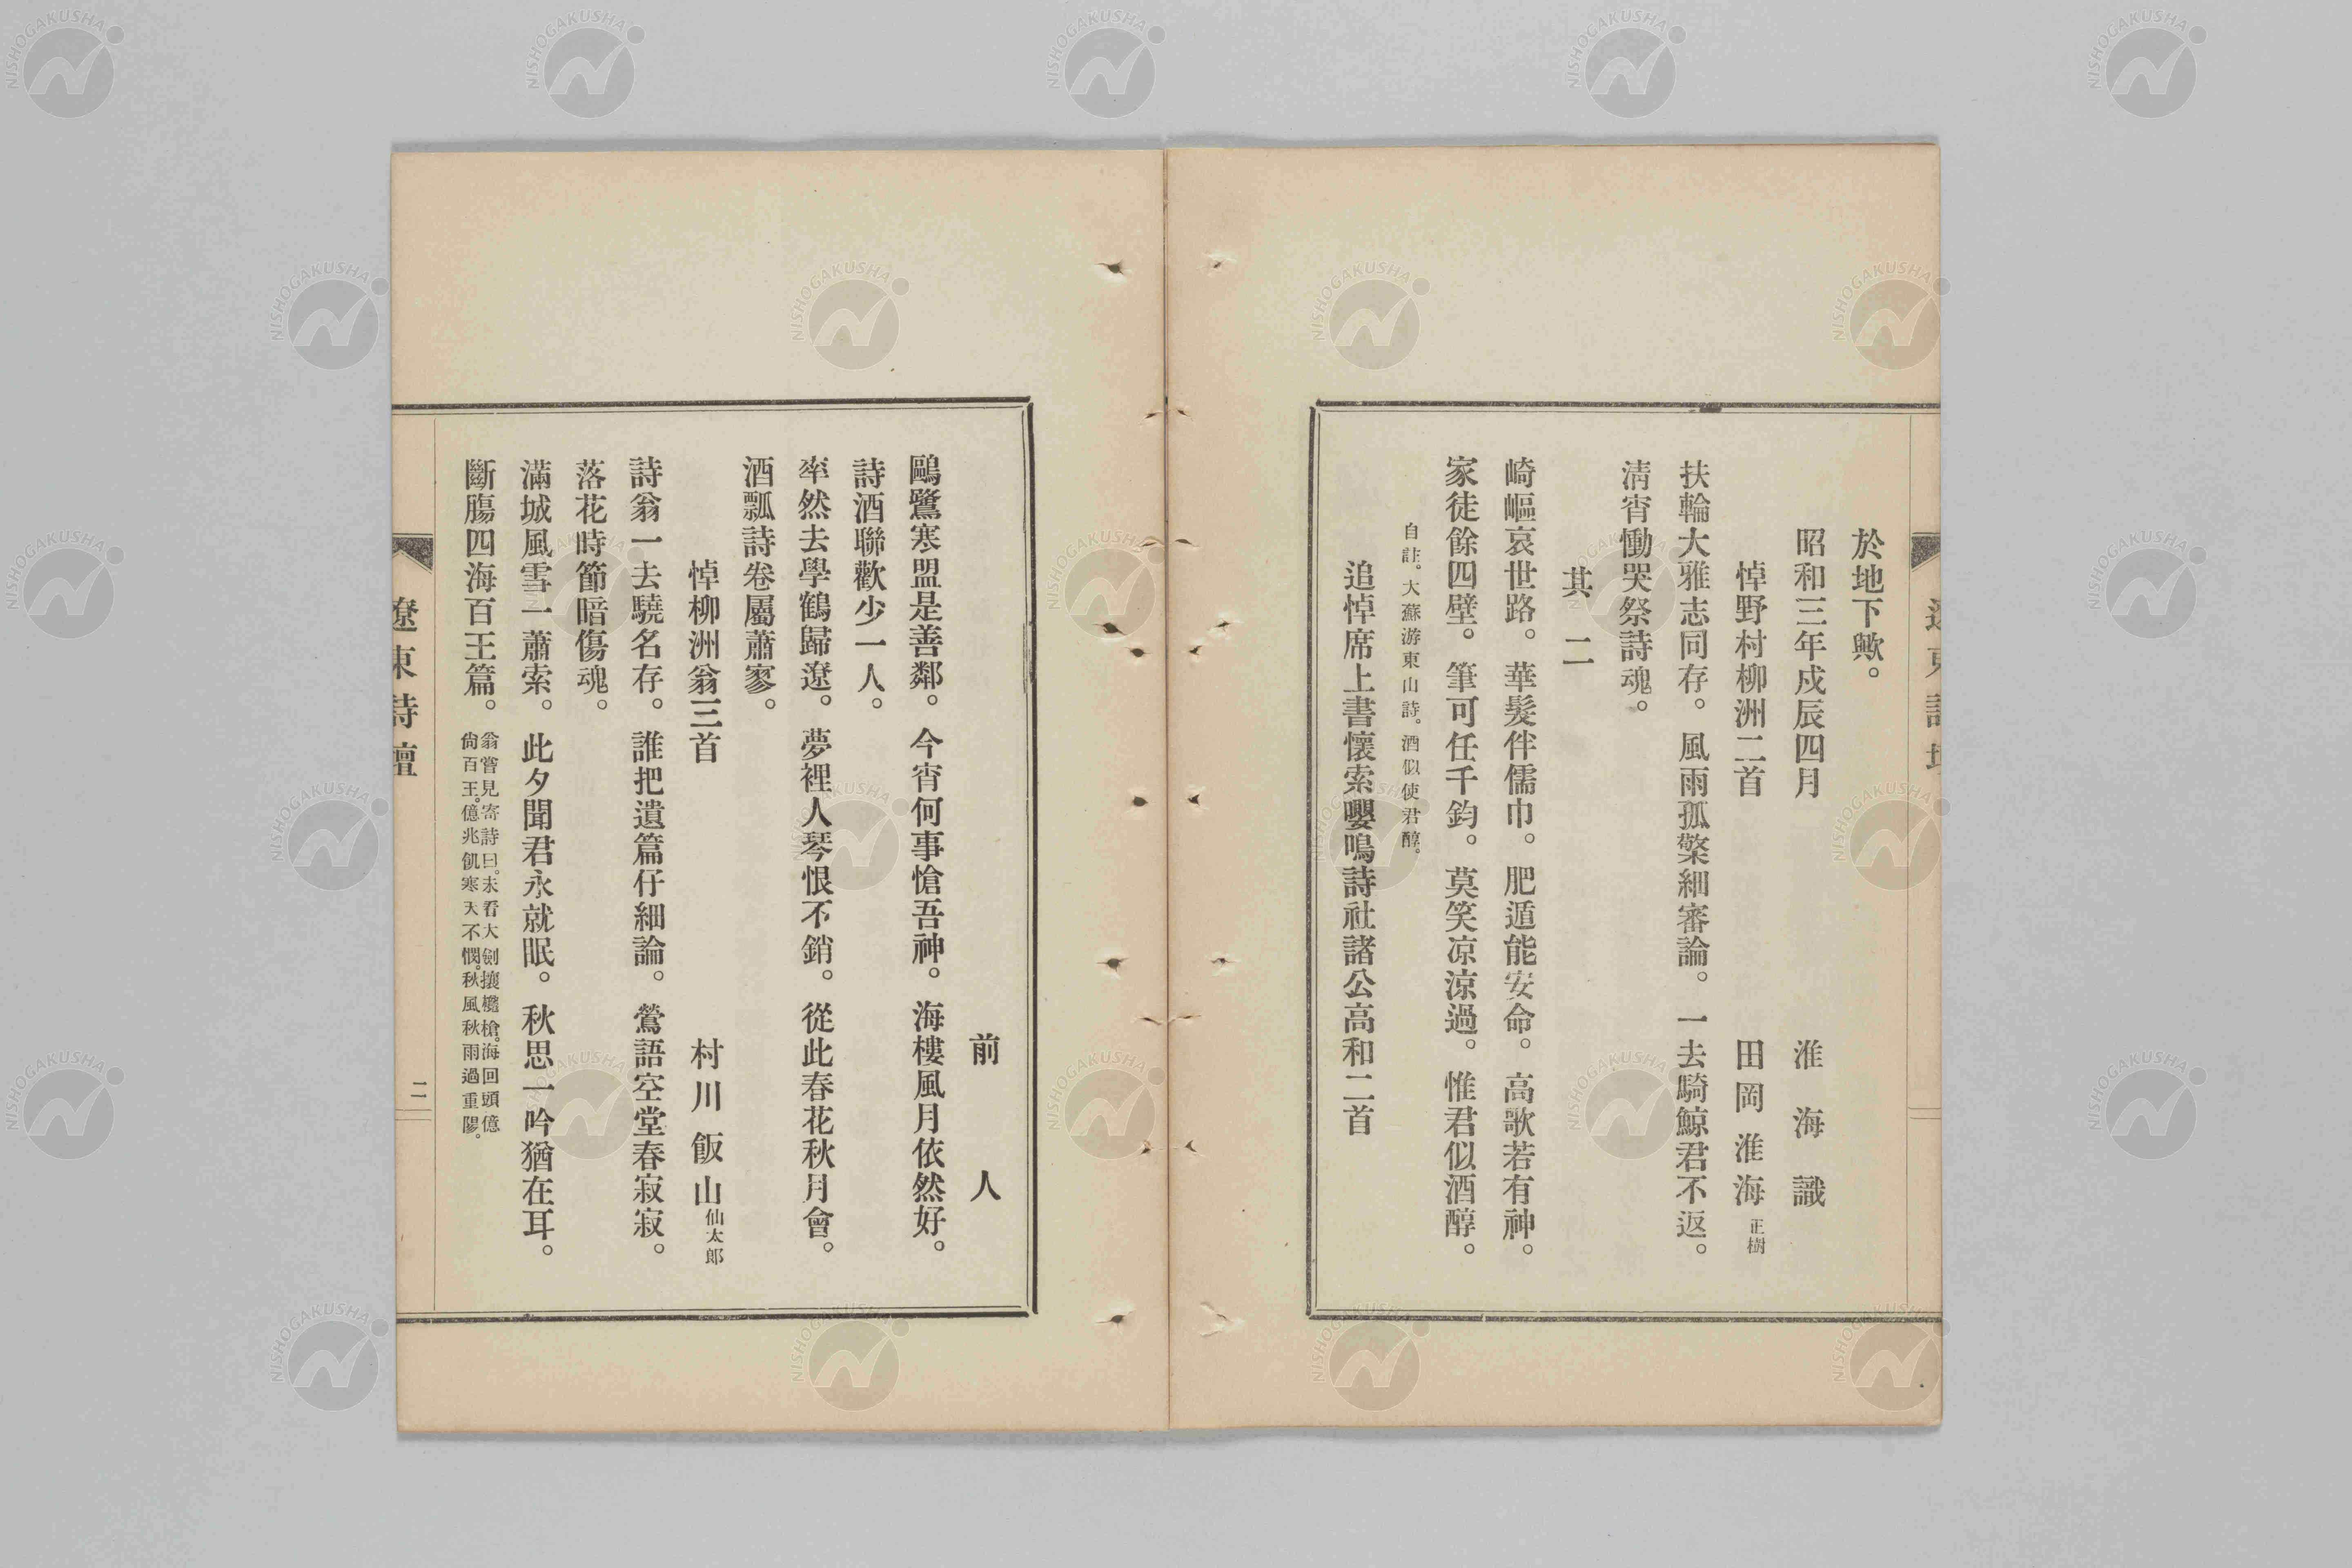 於地下歟。
昭和三年戍辰四月　淮海識
悼野村柳洲二首　田岡淮海正樹
扶輪大雅志同存。風雨孤檠細審論。一去騎鯨君不返。
淸宵慟哭祭詩魂。
其二
崎嶇哀世路。華髮伴儒巾。肥遁能安命。高歌若有神。
家徒餘四壁。筆可任千鈞。莫笑凉凉過。惟君似酒醇。
自註。大蘇游東山詩。酒似使君醇。
追悼席上書懷索嚶鳴詩社諸公高和二首
前人
鷗鷺寒盟是善鄰。今宵何事愴吾神。海樓風月依然好。
詩酒聯歡少一人。
率然去學鶴歸遼。夢裡人琴恨不銷。從此春花秋月會。
酒瓢詩卷屬蕭寥。
悼柳洲翁三首　村川飯山仙太郎
詩翁一去驍名存。誰把遺篇仔細論。鶯語空堂春寂寂。
落花時節暗傷魂。
滿城風雪一蕭索。此夕聞君永就眠。秋思一吟猶在耳。
斷膓四海百王篇。
翁嘗見寄詩曰。未看大劍攘欃槍。海回頭億
尙百王。億兆飢寒天不憫。秋風秋雨過重陽。
遼東詩壇
二